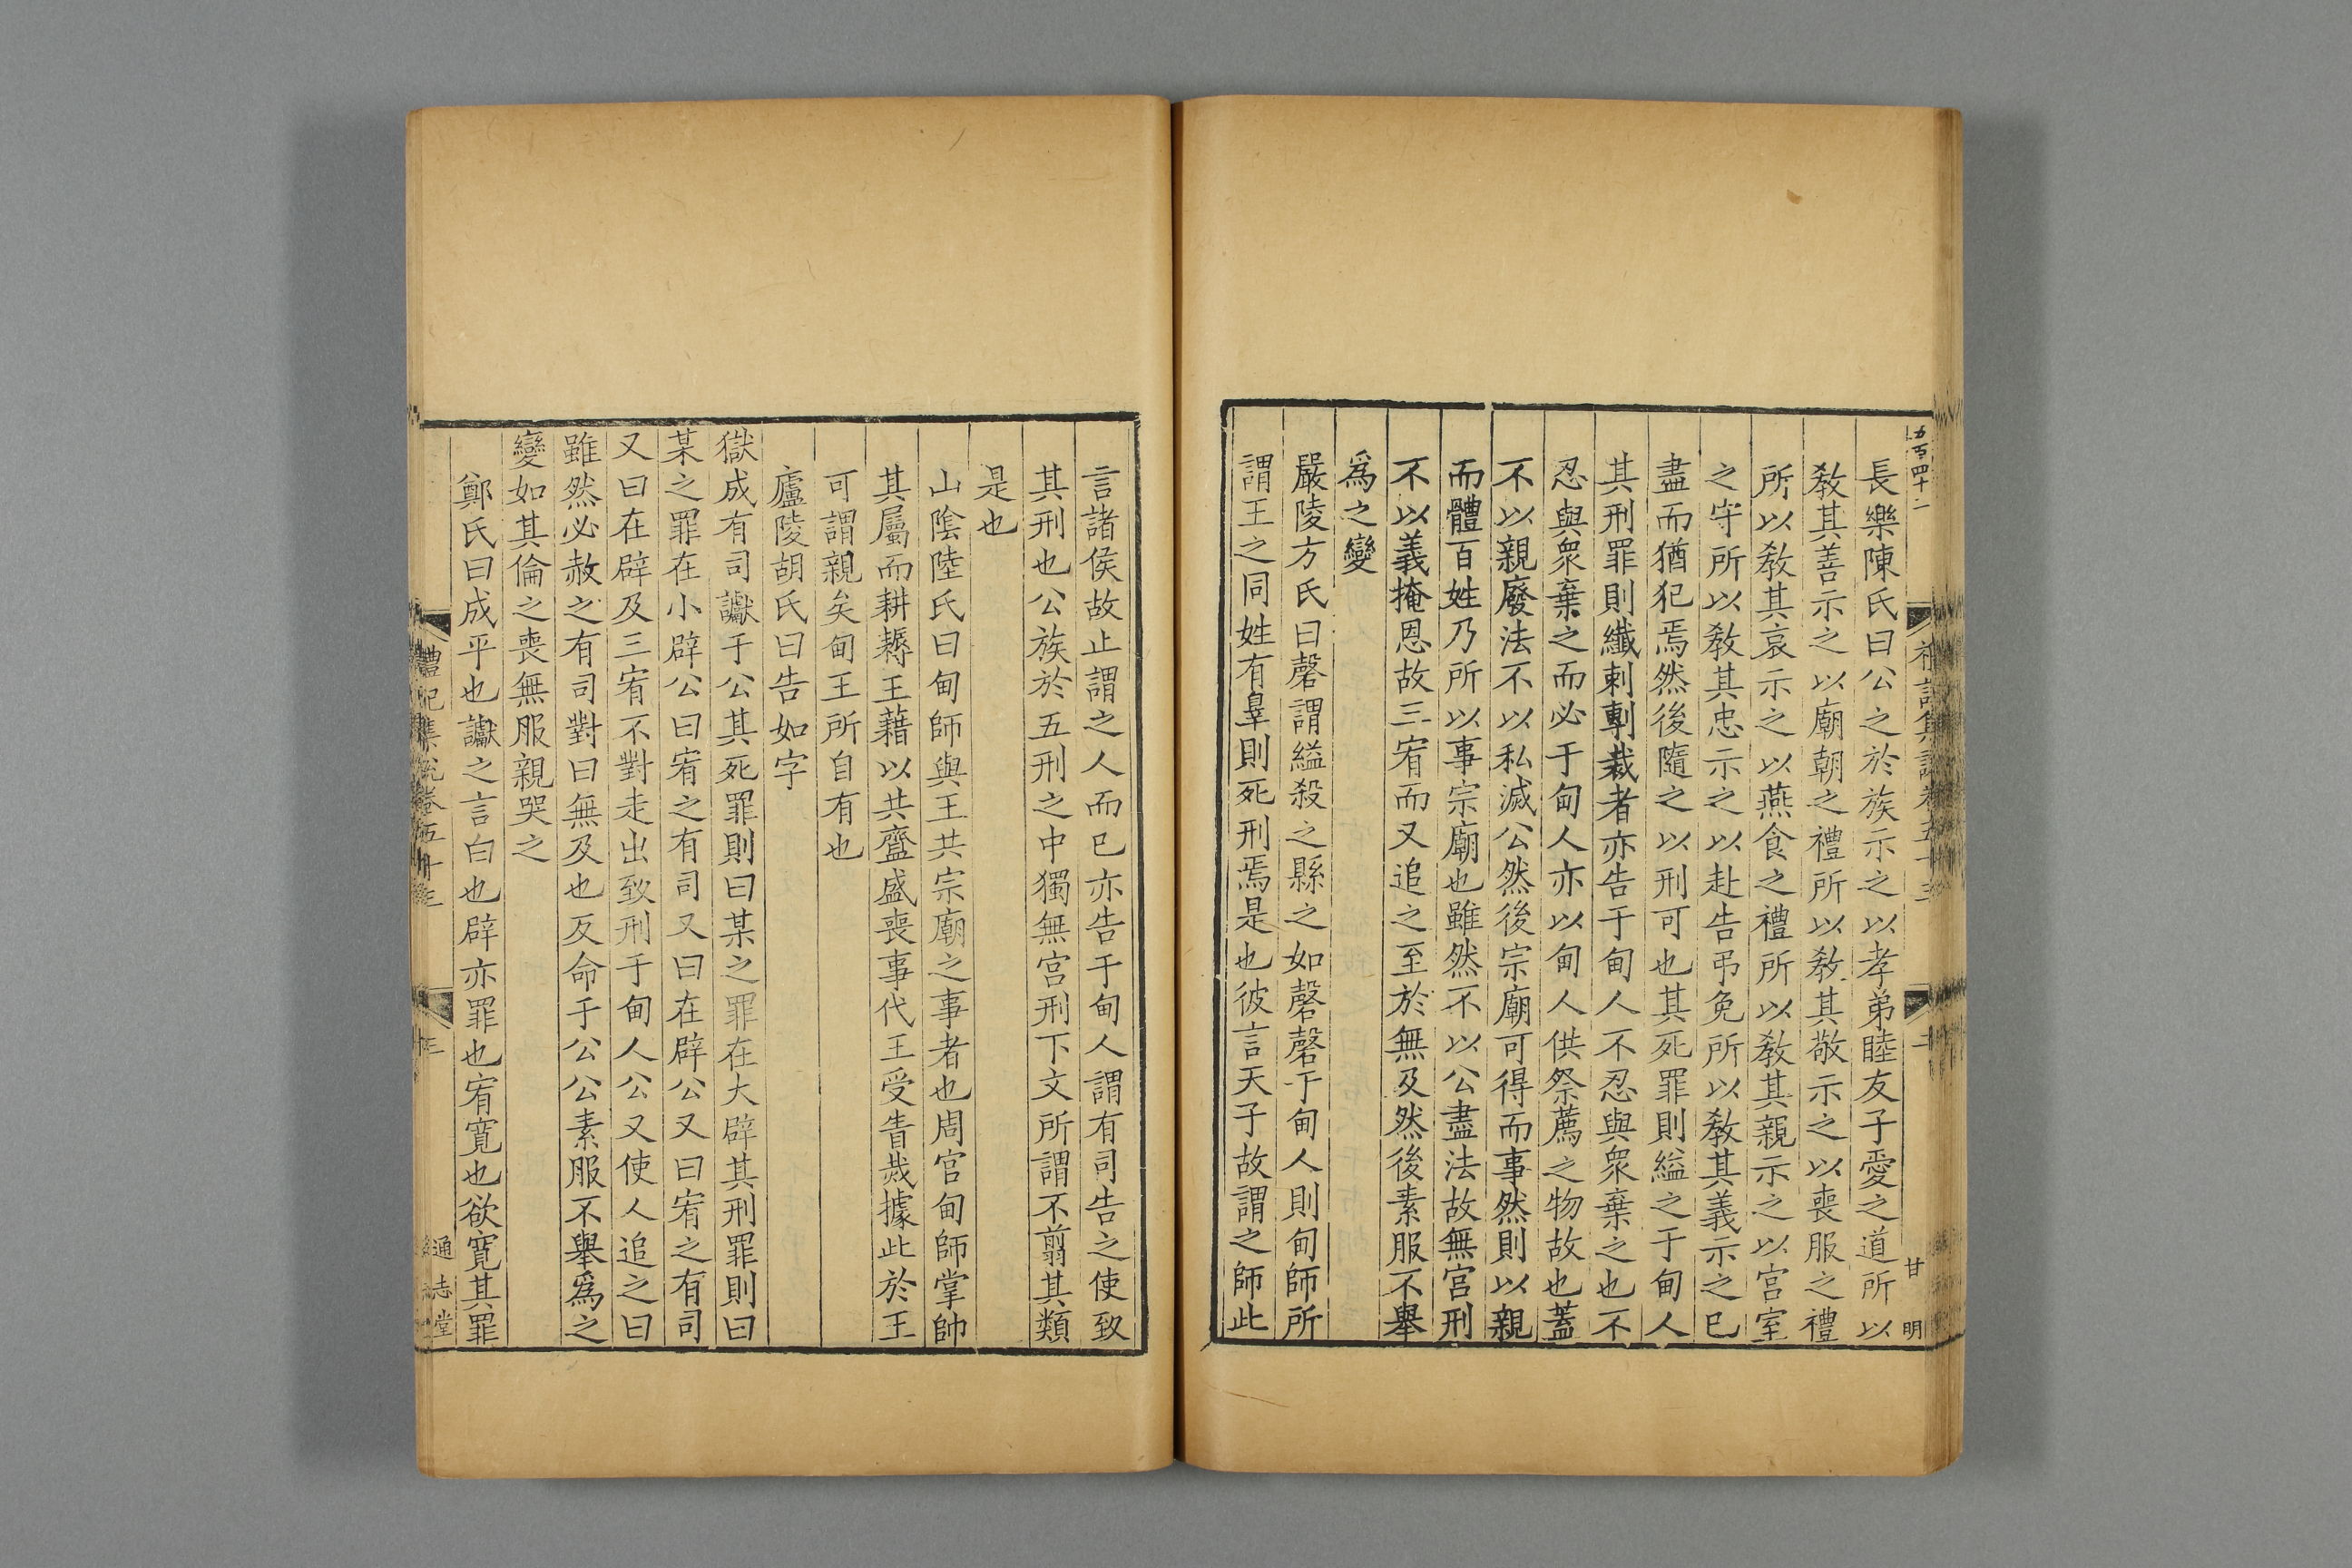 五百四十二
禮記集說卷五十三
二
甘
明
長樂陳氏曰公之於族示之以孝弟睦友子愛之道所以
教其善示之以廟朝之禮所以教其敬示之以喪服之禮
所以教其哀示之以燕食之禮所以教其親示之以宮室
之守所以教其忠示之以赴告弔免所以教其義示之已
盡而猶犯焉然後隨之以刑可也其死罪則縊之于甸人
其刑罪則纖剌剸裁者亦告于甸人不忍與衆棄之也不
忍與衆棄之而必于甸人亦以甸人供祭薦之物故也蓋
不以親廢法不以私滅公然後宗廟可得而事然則以親
而體百姓乃所以事宗廟也雖然不以公盡法故無宮刑
不以義掩恩故三宥而又追之至於無及然後素服不舉
爲之變
嚴陵方氏曰磬謂縊殺之縣之如磬磬于甸人則甸師所
謂王之同姓有辠則死刑焉是也彼言天子故謂之師此
言諸侯故止謂之人而已亦告于甸人謂有司告之使致
其刑也公族於五刑之中獨無宮刑下文所謂不翦其類
是也
山陰陸氏曰甸師與王共宗廟之事者也周官甸師掌帥
其屬而耕耨王藉以共齍盛喪事代王受眚烖據此於王
可謂親矣甸王所自有也
廬陵胡氏曰告如字
獄成有司讞于公其死罪則曰某之罪在大辟其刑罪則曰
某之罪在小辟公曰宥之有司又曰在辟公又曰宥之有司
又曰在辟及三宥不對走出致刑于甸人公又使人追之曰
雖然必赦之有司對曰無及也反命于公公素服不舉爲之
變如其倫之喪無服親哭之
鄭氏曰成平也讞之言白也辟亦罪也宥寬也欲寬其罪
禮記集說卷五十三
三
通志堂